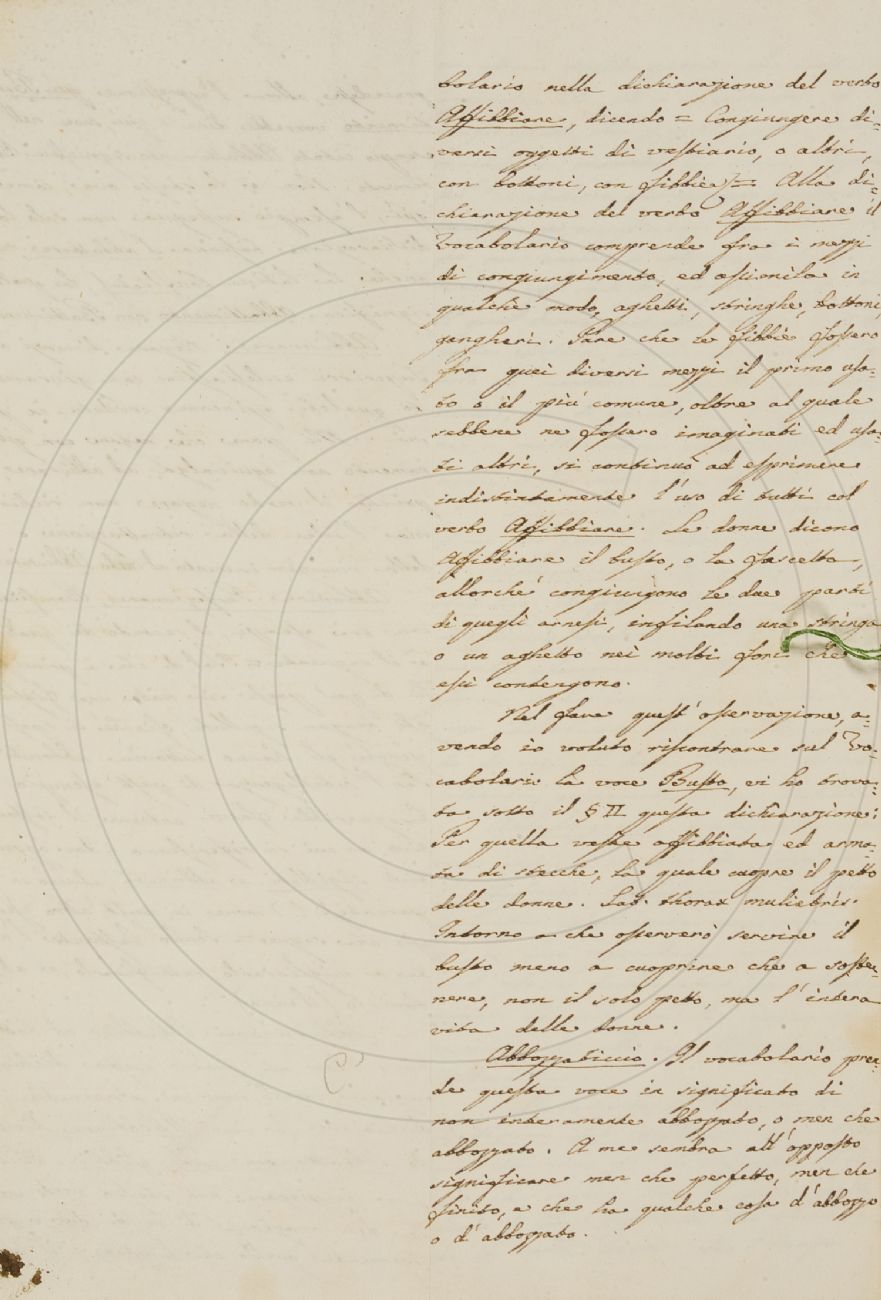 bolario nella dichiarazione del verbo
Affibbiare, dicendo = Congiungere di=
versi oggetti di vestiario, o altri,
con bottoni, con fibbie = Alla di=
chiarazione del verbo Affibbiare il
Vocabolario comprende fra i mezzi
di congiungimento, ed assimila in
qualche modo, aghetti, stringhe, bottoni
gangheri. Pare che le fibbie fossero
fra quei diversi mezzi il primo usa=
to o il più comune, oltre al quale
sebbene ne fossero imaginati ed usa=
ti altri, si continuò ad esprimere
indistintamente l'uso di tutti col
verbo Affibbiare. Le donne dicono
Affibbiare il busto, o la fascetta,
allorché congiungono le due parti
di quegli arnesi, infilando una stringa
o un aghetto nei molti fori che
essi contengono.
Nel fare quest'osservazione, a=
vendo io voluto riscontrare sul Vo=
cabolario la voce Busto, vi ho trova=
ta sotto il § II questa dichiarazione:
Per quella veste affibbiata ed arma=
ta di stecche, la quale cuopre il petto
delle donne. Lat. thorax muliebris.
Intorno a che osserverò servire il
busto meno a cuoprire che a soste=
nere, non il solo petto, ma l'intera
vita delle donne.
Abbozzaticcio. Il vocabolario pren=
de questa voce in significato di
non interamente abbozzato, o men che
abbozzato. A me sembra all'opposto
significare men che perfetto, men che
finito, e che ha qualche cosa d'abbozzo
o d'abbozzato.